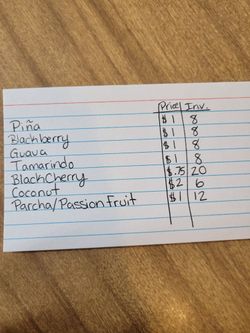 Price Inv.
Piña $1 8
Blackberry $1 8
Guava $1 8
Tamarindo $1 8
BlackCherry $.75 20
Coconut $2 6
Parcha/Passion fruit $1 12